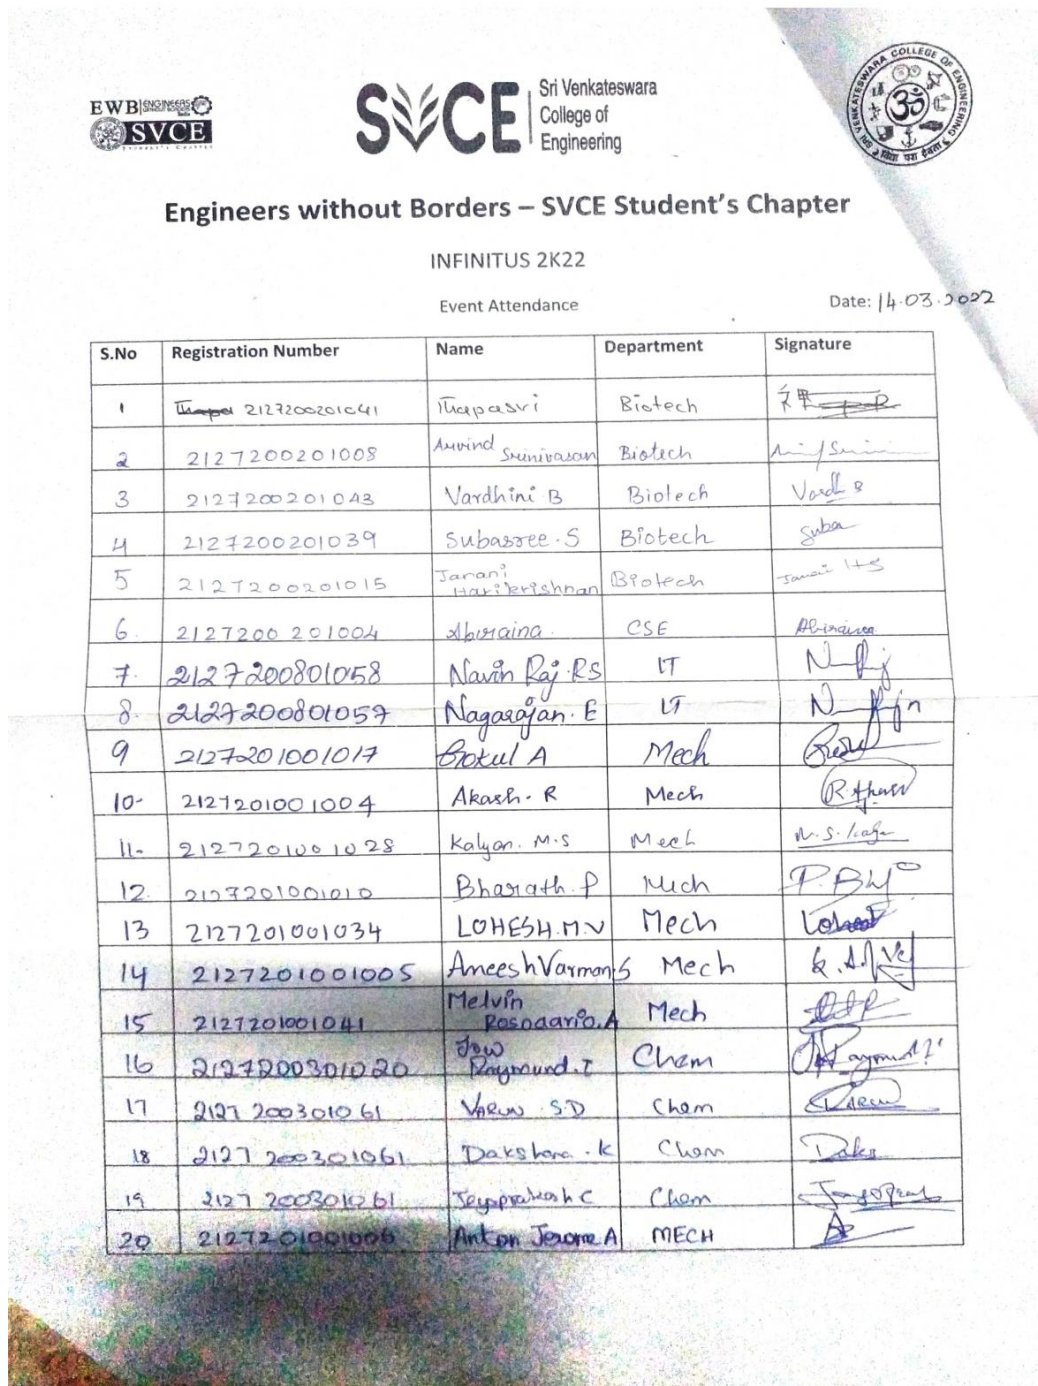 EWB ENGINEERS WITHOUT BORDERS
SVCE
STUDENT'S CHAPTER
SVCE Sri Venkateswara
College of
Engineering
SRI VENKATESWARA COLLEGE OF ENGINEERING
Engineers without Borders – SVCE Student's Chapter
INFINITUS 2K22
Event Attendance
Date: 14.03.2022
S.No Registration Number Name Department Signature
1 2127200201041 Thapasvi Biotech
2 2127200201008 Arvind Srinivasan Biotech
3 2127200201043 Vardhini B Biotech Vardh B
4 2127200201039 Subasree.S Biotech Suba
5 2127200201015 Janani Harikrishnan Biotech Janani H S
6. 2127200 201004 Abiraina. CSE Abiraina
7. 2127200801058 Navin Raj.RS IT
8. 2127200801057 Nagarajan.E IT
9 2127201001017 Gokul A Mech
10- 2127201001004 Akash.R Mech
11- 2127201001028 Kalyan. M.S Mech
12. 2127201001010 Bharath.P Mech
13 2127201001034 LOHESH.M.V Mech
14 2127201001005 Aneesh Varman.S Mech
15 2127201001041 Melvin Rosaario.A Mech
16 2127200301020 Jow Raymund.I Chem
17 2127 200301061 VARUN S.D Chem
18 2127 200301061 Dakshana.K Chem Daks
19 2127 200301061 Jeyaprakash C Chem
20 2127201001006 Anton Jerome A MECH